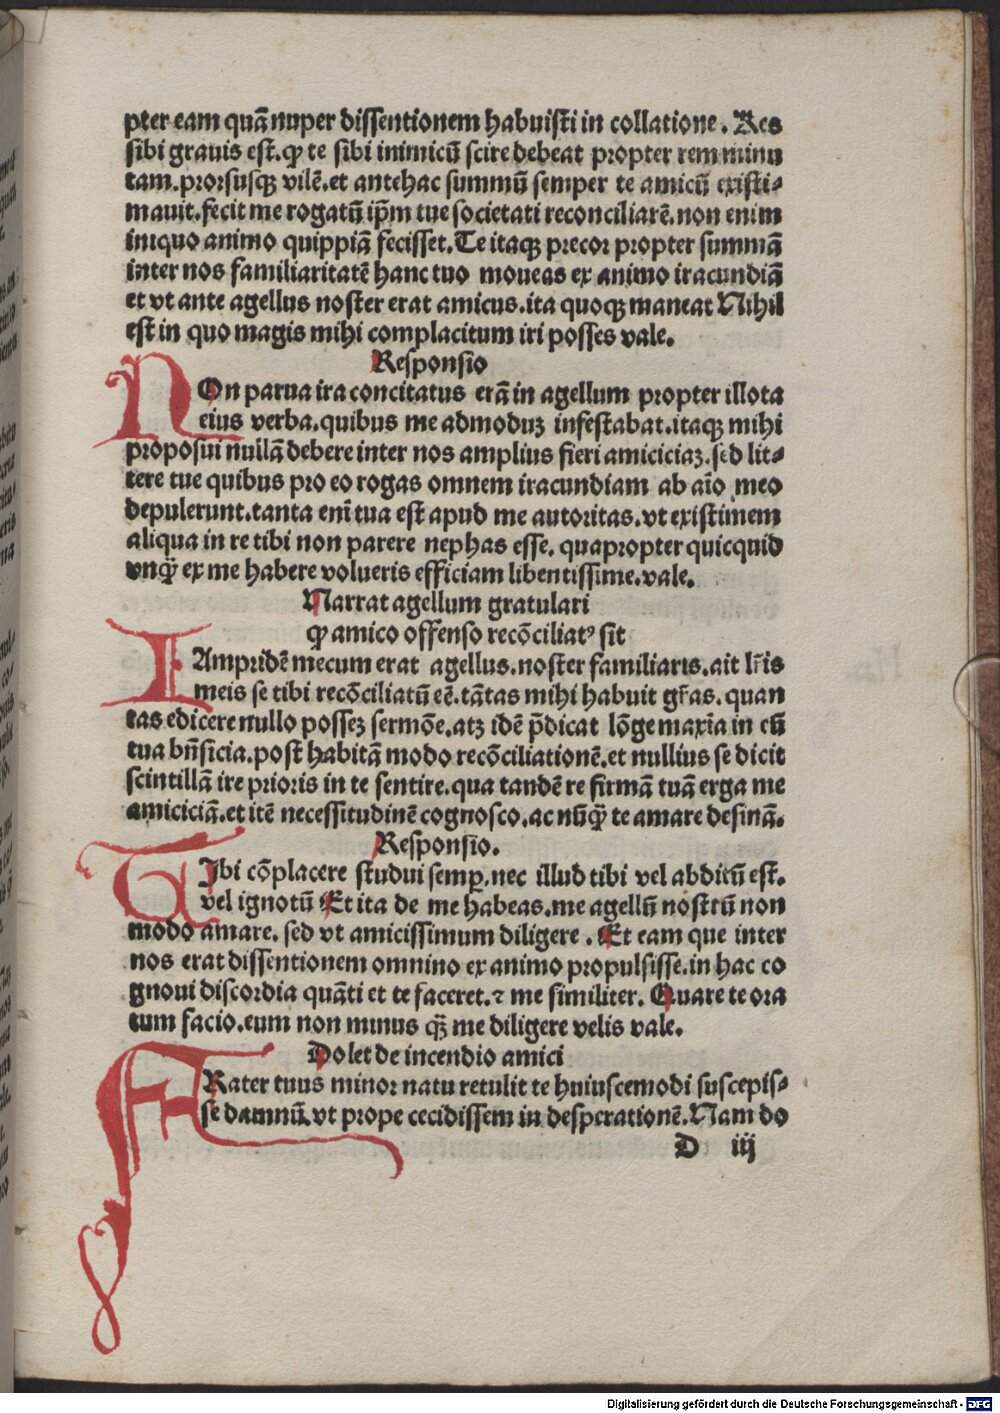 pter eam quā nuper dissentionem habuisti in collatione. Res
sibi grauis est.ꝙ te sibi inimicū scire debeat propter rem minu
tam.prorsusqꝫ vilē.et antehac summū semper te amicū existi⸗
mauit.fecit me rogatū ip̄m tue societati reconciliarē.non enim
iniquo animo quippiā fecisset.Te itaqꝫ precor propter summā
inter nos familiaritatē hanc tuo moueas ex animo iracundiā
et vt ante agellus noster erat amicus.ita quoqꝫ maneat Nihil
est in quo magis mihi complacitum iri posses vale.
Responsio
NOn parua ira concitatus erā in agellum propter illota
eius verba.quibus me admoduꝫ infestabat.itaqꝫ mihi
proposui nullā debere inter nos amplius fieri amiciciaꝫ.sed lit⸗
tere tue quibus pro eo rogas omnem iracundiam ab aīo meo
depulerunt.tanta enī tua est apud me autoritas.vt existimem
aliqua in re tibi non parere nephas esse. quapropter quicquid
vnqꝫ̄ ex me habere volueris efficiam libentissime.vale.
Narrat agellum gratulari
ꝙ amico offenso recōciliatꝰ sit
IAmpridē mecum erat agellus.noster familiaris.ait lr̄is
meis se tibi recōciliatū eē.tātas mihi habuit gr̄as. quan
tas edicere nullo posseꝫ sermōe.atꝫ idē p̄dicat lōge maxīa in eū
tua bn̄ficia.post habitā modo recōciliationē.et nullius se dicit
scintillā ire prioris in te sentire.qua tandē re firmā tuā erga me
amiciciā.et itē necessitudinē cognosco.ac nūqꝫ̄ te amare desinā.
Responsio.
TIbi cōplacere studui semp̱.nec illud tibi vel abditū est.
vel ignotū Et ita de me habeas.me agellū nostrū non
modo amare. sed vt amicissimum diligere. Et eam que inter
nos erat dissentionem omnino ex animo propulsisse.in hac co
gnoui discordia quāti et te faceret.⁊ me similiter. Quare te ora
tum facio.eum non minus qꝫ̄ me diligere velis vale.
Dolet de incendio amici
FRater tuus minor natu retulit te huiuscemodi suscepis⸗
se damnū.vt prope cecidissem in desperationē.Nam do
D iij
Digitalisierung gefördert durch die Deutsche Forschungsgemeinschaft - DFG